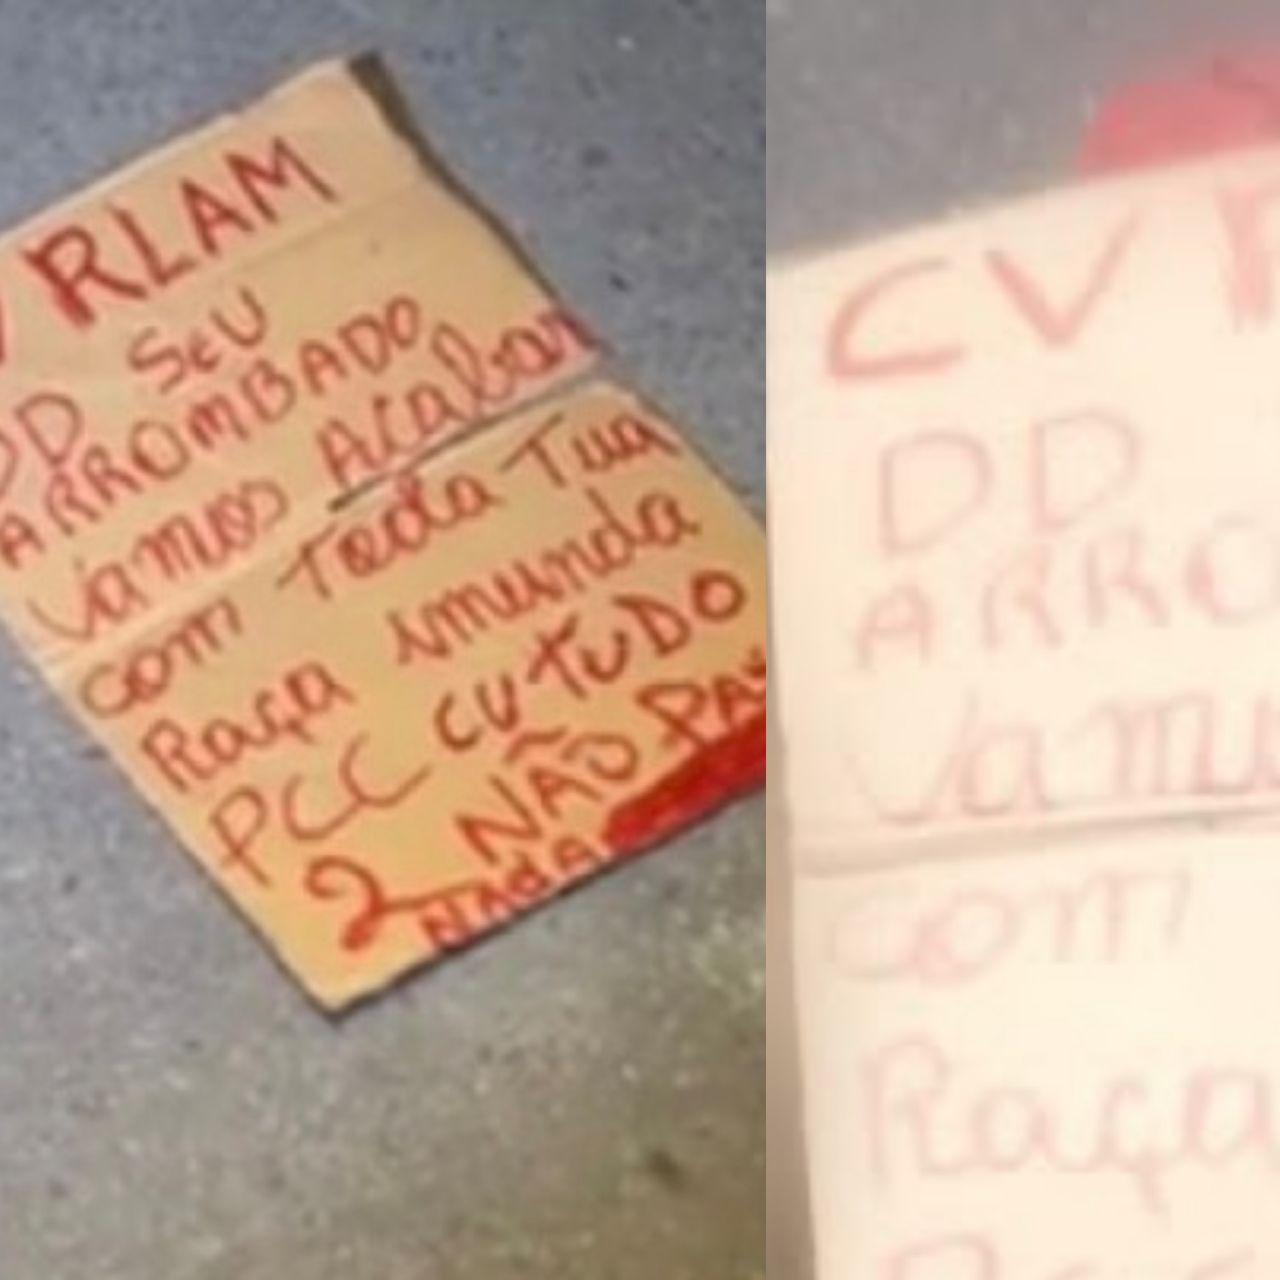 V RLAM
DD SEU
ARROMBADO
Vamos Acabar
com Toda Tua
Raça imunda
PCC CV TUDO
2 NÃO PAS
NAdA
CV R
DD
ARRO
Vamo
com
Raça